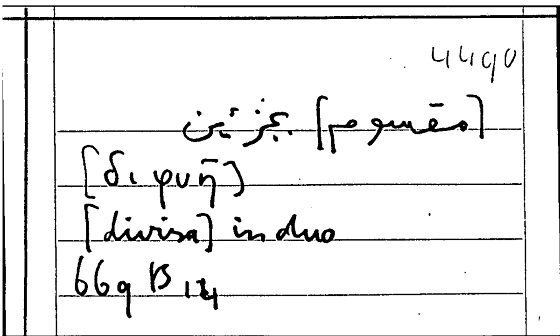 4490
[مقسوم] بجزئين
[διφυῆ]
[divisa] in duo
669 B 14